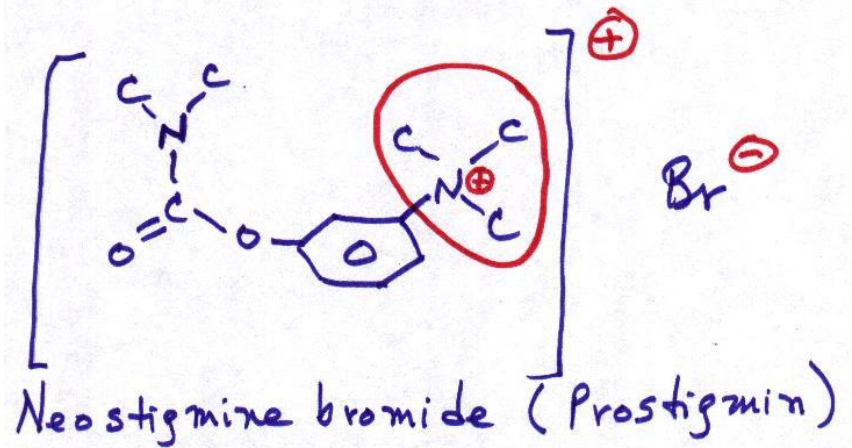 C C
N
C
O
O
O
C C
N ⊕
C
⊕
Br ⊖
Neostigmine bromide (Prostigmin)